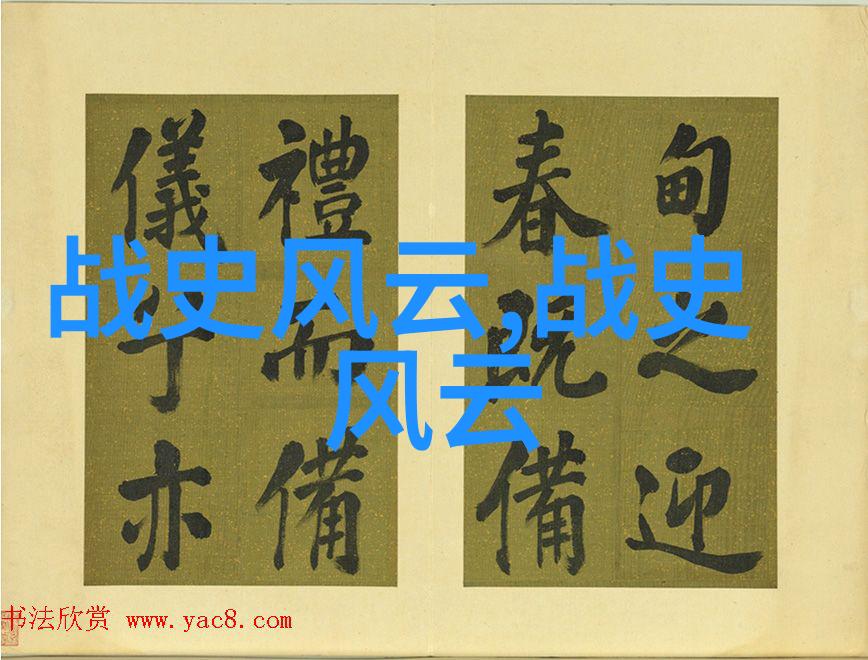 甸之迎
春既備
禮而備
儀亦
战史风云,战史
风云
书法欣赏 www.yac8.com